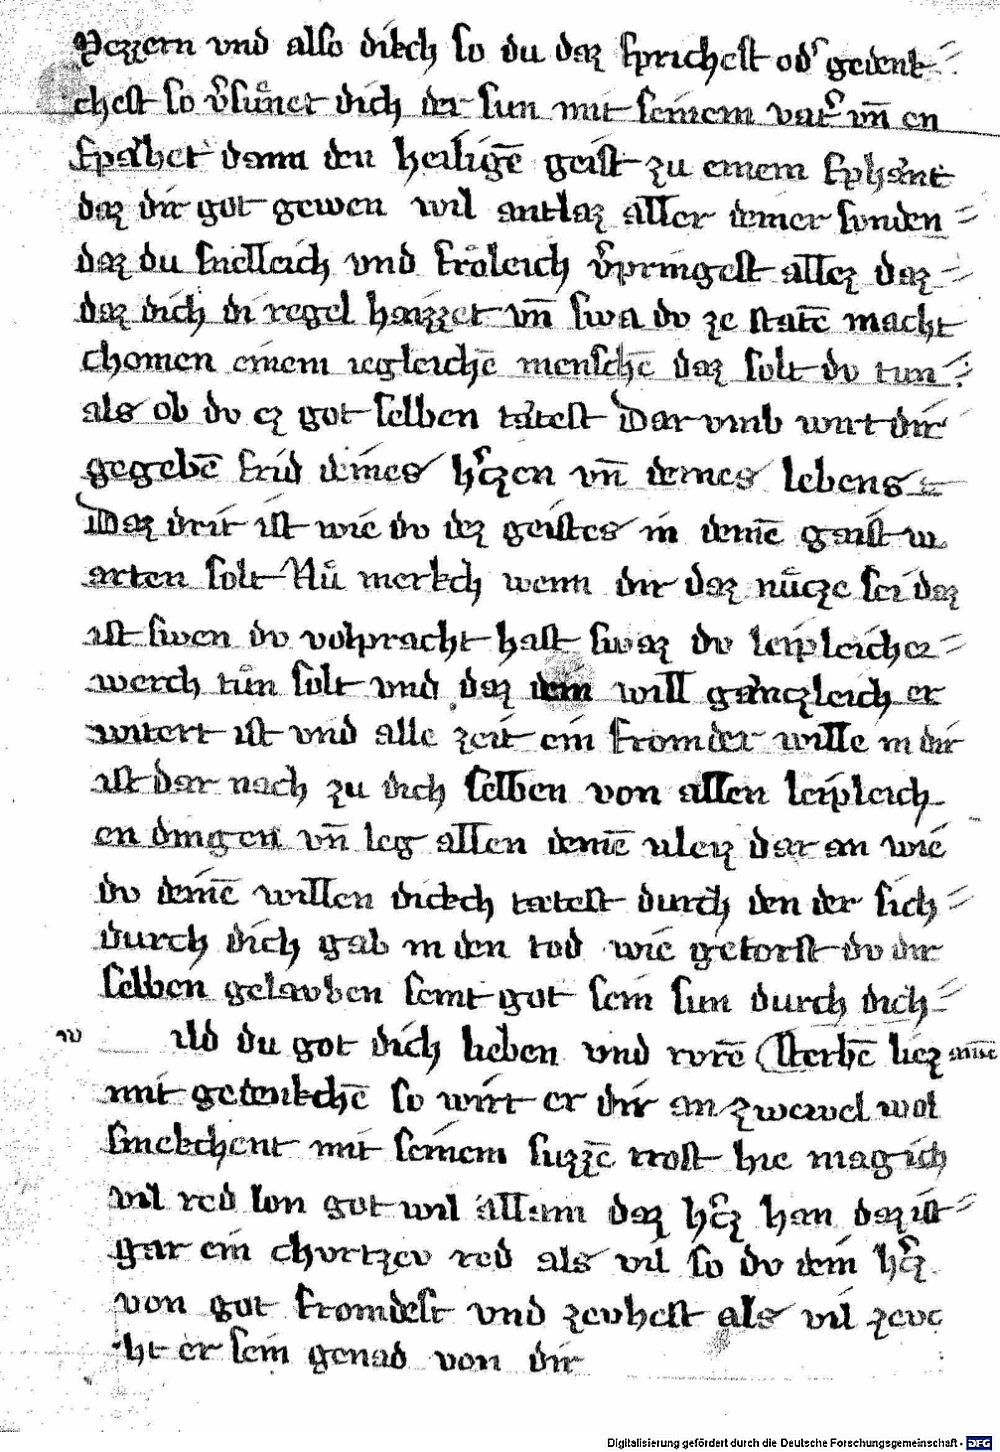 Pezzern vnd also dikch so du daz sprichest od᷒ gedenk-
chest so v᷒suͤnet dich der sun mit seinem vat᷒ vn̄ en
daz dir got gewen wil antlaz aller deiner sunden
daz du snelleich vnd froͤleich v᷒pringest allez daz
daz dich di regel haizzet vn̄ swa du ze statē macht
chomen einem iegleichē menschē daz solt du tun
als ob du ez got selben taͤtest Dar vmb wirt dir
gegebē frid deines h᷒czen vn̄ deines lebens
Daz drit ist wie du dez geistes in deinē gaist w
arten solt Nuͤ merkch wenn dir daz nuͤcze sei daz
ist swen du volpracht hast swaz du leipleicher
werch tuͤn solt vnd daz dein will gaͤnczleich er
witert ist vnd alle zeit ein fromder wille in dir
ist dar nach zu dich selben von allen leipleich
en dingen vn̄ leg allen deinē vleiz dar an wie
du deinē willen dickch tætest durch den der sich
durch dich gab in den tod wie getorst du dir
selben gelauben seint got sein sun durch dich
w ild du got dich lieben vnd rvrē sterbē liez
mit gedenkchē so wirt er dir an zweivel wol
smekchent mit seinem suzzē trost hie mag ich
vil red lon got wil allain daz h᷒cz han daz ist
gar ein churtzev red als vil so du dein h᷒cz
von got fromdest vnd zeuhest als vil zeue
ht er sein genad von dir
Digitalisierung gefördert durch die Deutsche Forschungsgemeinschaft - DFG